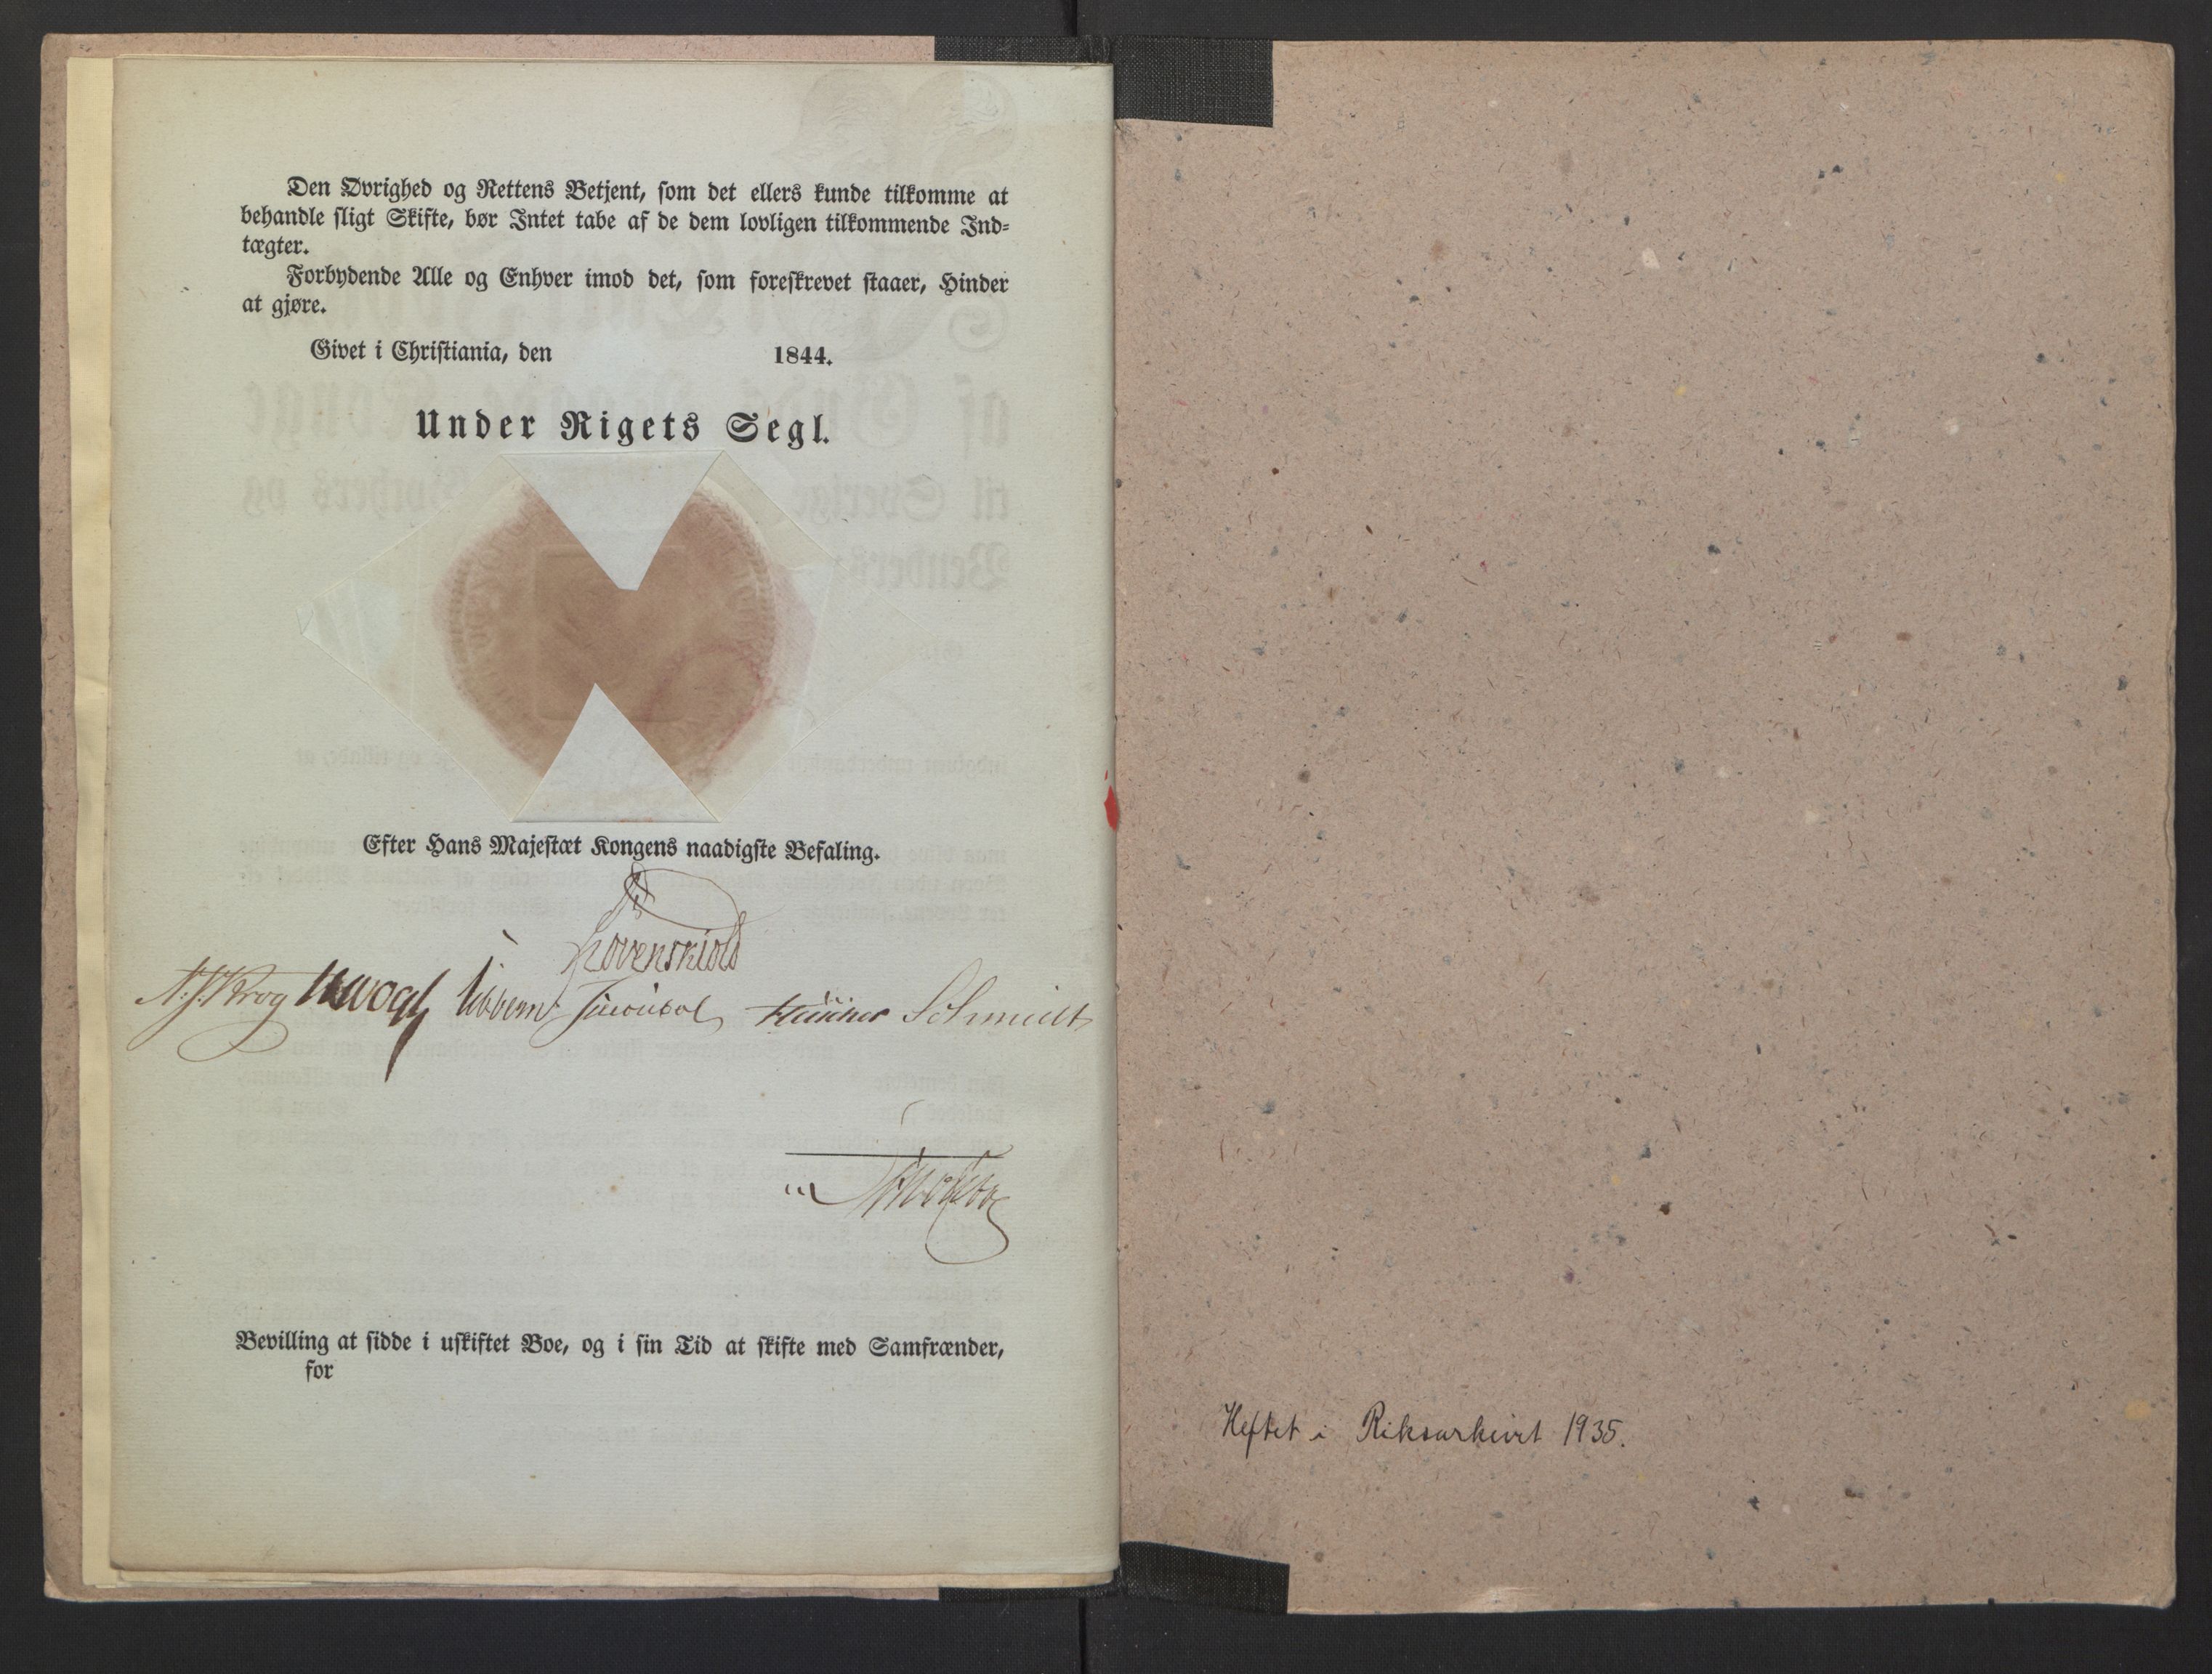 Den Øvrighed og Rettens Betjent, som det ellers kunde tilkomme at
behandle sligt Skifte, bør Intet tabe af de dem lovligen tilkommende Ind-
tægter.
Forbydende Alle og Enhver imod det, som foreskrevet staaer, Hinder
at gjøre.
Givet i Christiania, den 1844.
Under Rigets Segl.
Efter Hans Majestæt Kongens naadigste Befaling.
Løvenskiold
N. J. Krog Vogt Sibbern Schmidt
Bevilling at sidde i uskiftet Boe, og i sin Tid at skifte med Samfrænder,
for
Heftet i Riksarkivet 1935.